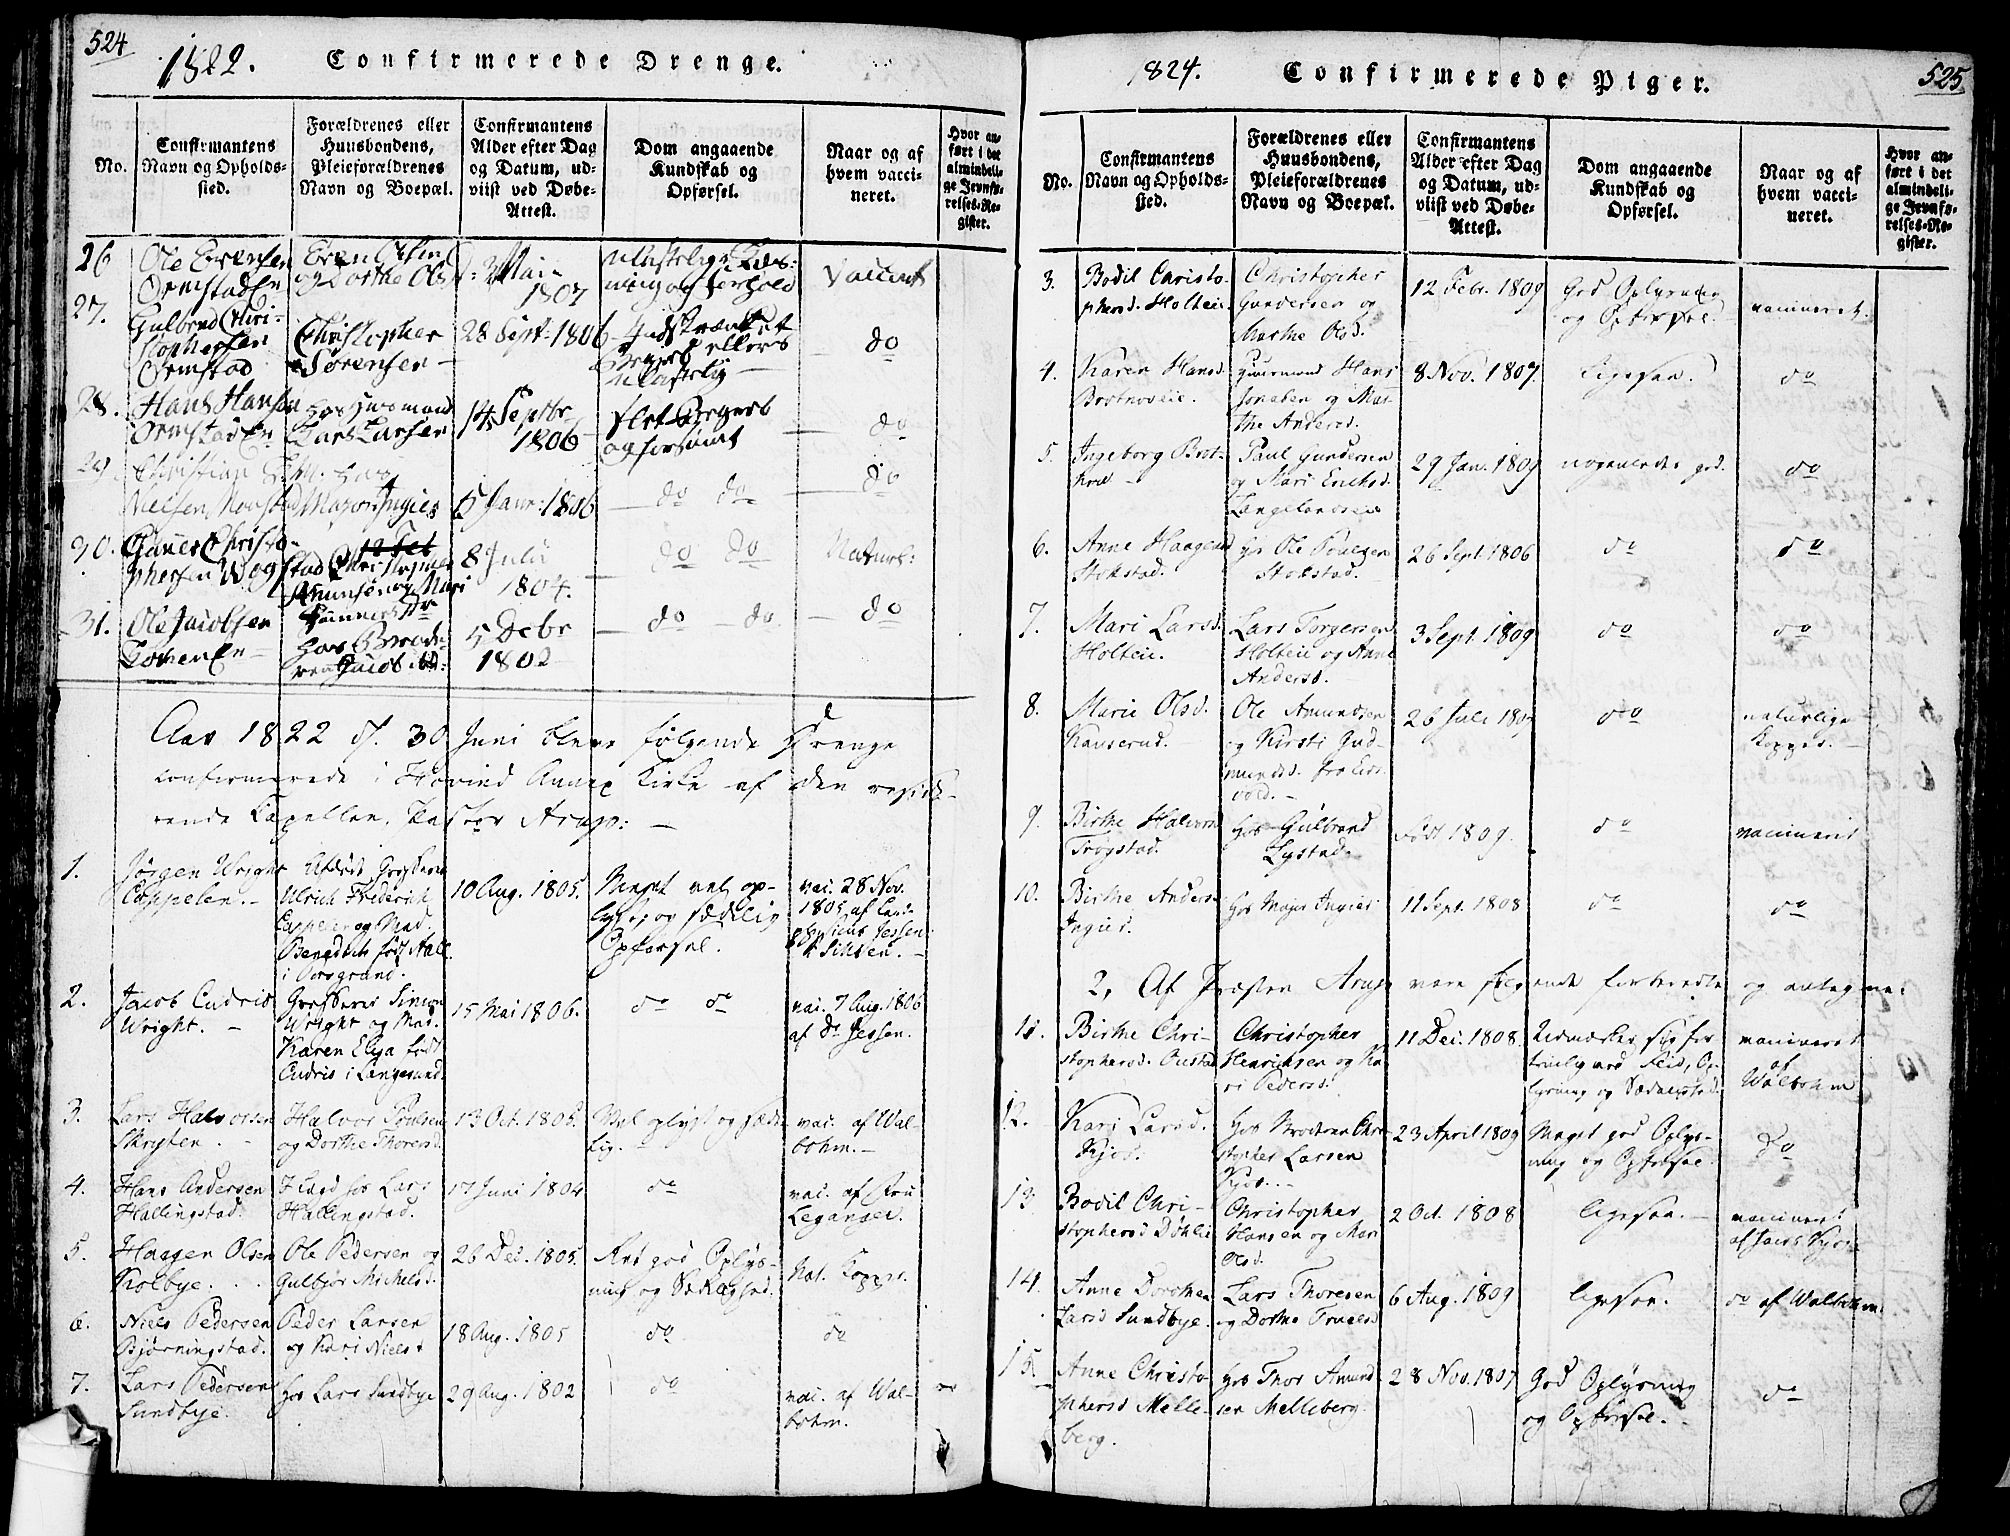 524
1822. Confirmerede Drenge.
No.
Confirmantens
Navn og Opholds-
sted.
Forældrenes eller
Huusbondens,
Pleieforældrenes
Navn og Boepæl.
Confirmantens
Alder efter Dag
og Datum, ud-
viist ved Døbe-
Attest.
Dom angaaende
Kundskab og
Opførsel.
Naar og af
hvem vacci-
neret.
Hvor an-
ført i det
almindeli-
ge Jevnfø-
relses-Re-
gister.
26 Ole Evensen
Ormstaden
og Dorthe Olsd:
1807
27. Gulbrand Chri-
stophersen
Ormstad
Christopher
Sørensen
28 Sept: 1806
Indskrænket
Begreb ellers
do
28. Hans Hansen
Ormstaden
hos Huusmand
Lars Larsen
14 Septbr
1806
slet Begreb
og forsømt
do
29. Christian
Nielsen
hos
Major Ingier
5 Janr: 1806
do do
do
30. Christo-
phersen
8 Julii
1804.
do do
Naturl:
31. Ole Jacobsen
hos Broder
5 Debr
1802
do do
do
Aar 1822 d. 30 Juni bleve følgende Drenge
confirmerede i Hovind Annex Kirke af den reside-
rende Capellan, Pastor Arup: —
1. Jørgen Wright
Cappelen. -
Afdøde
Ulrich Frederich
Cappelen og Mad.
Benedicte født Aall
i Porsgrund.
10 Aug. 1805.
Meget vel op-
lyst og sædelig
Opførsel.
vac. 28 Nov.
1805 af Land-
physicus Jessen
i Skien. -
2. Jacob Cudrio
Wright. -
Simon
Wright og Mad.
Karen Elisa født
Cudrio i Langesund.
15 Mai 1806.
do do
vac. 7 Aug. 1806
af Dr Jessen.
3. Lars Halvorsen
Skrysten. -
Halvor Poulsen
og Dorthe Thoresd.
13 Oct. 1805.
Vel oplyst og sæde-
lig. -
vac. af Wal-
bohm. -
4. Hans Andersen
Hallingstad.
hos Lars
Hallingstad.
17 Juni 1804
do
vac. af Fru
Leganger.
5. Haagen Olsen
Kolbye. .
Ole Pedersen og
Gulbjør Michelsd.
26 Dec. 1805.
Ret god Oplys-
ning og Sædelighed.
Nat. Kopper.
6. Niels Pedersen
Bjørningstad.
Peder Larsen
og Kari Nielsd
18 Aug. 1805
do
do
7. Lars Pedersen
Sundbye.
hos Lars Sundbye
29 Aug. 1802
do
vac. af Wal-
bohm.
1824. Confirmerede Piger. 525
No.
Confirmantens
Navn og Opholds-
sted.
Forældrenes eller
Huusbondens,
Pleieforældrenes
Navn og Boepæl.
Confirmantens
Alder efter Dag
og Datum, ud-
viist ved Døbe-
Attest.
Dom angaaende
Kundskab og
Opførsel.
Naar og af
hvem vacci-
neret.
Hvor an-
ført i det
almindeli-
ge Jevnfø-
relses-Re-
gister.
3. Bodil Christo-
phersd. Holteie.
Christopher
Gundersen og
Marthe Olsd.
12 Febr. 1809
God Oplysning
og Opførsel.
vaccineret.
4. Karen Hansd.
Huusmand Hans
og Mar-
the Andersd.
8 Nov. 1807.
ligesaa.
do
5. Ingeborg
Paul Gundersen
og Mari Ericksd.
29 Jan. 1809
nogenledes god.
do
6. Anne Haagensd
Stokstad.
hos Ole Poulsen
Stokstad.
26 Sept. 1806
do
do
7. Mari Larsd.
Holteie.
Lars Torgersen
Holteie og Anne
Andersd.
3 Sept. 1809
do
do
8. Marie Olsd.
Kauserud.
Ole Amundsen
og Kirsti Gud-
mundsd. fra Eids-
vold. -
26 Juli 1809
do
naturlige
Kopper. -
9. Birthe Halvorsd
Trøgstad.
hos Gulbrand
Lystad.
Født 1809.
do
vaccineret
10. Birthe Andersd.
Ingier.
hos Major Ingier
11 Sept. 1808
do
do
2, Af Præsten Arup vare følgende forberedte og antagne:
11. Birthe Chri-
stophersd. Onstad
Christopher
Henricksen og Ka-
ri Pedersd.
11 Dec. 1808.
Udmærker sig for-
trinlig ved Flid, Op-
lysning og Sædelighed.
vaccineret
af
Walbohm
12. Kari Larsd.
Kjos.
hos Broderen Chri-
stopher Larsen
Kjos. -
23 April 1809
Meget god Oplys-
ning og Opførsel.
do
13. Bodil Chri-
stophersd Døhlie
Christopher
Hansen og Mari
Olsd.
2 Oct. 1808
ligesaa. -
vaccineret
14. Anne Dorothea
Larsd Sundbye.
Lars Thoresen
og Dorthe Truelsd
6 Aug. 1809
ligesaa.
do af Walbohm.
15. Anne Christo-
phersd Melle-
berg.
hos Thor Amund-
sen Melleberg.
28 Nov. 1807
God Oplysning
og Opførsel. -
do